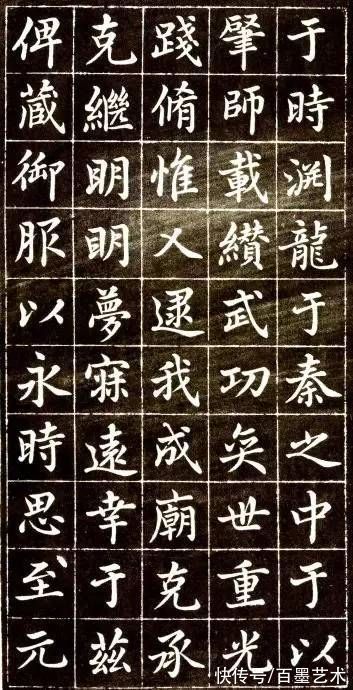 于時渕龍于秦之中于以
肇師載纘武功奕世重光
踐脩惟乂逮我成廟克承
克繼明明夢寐遠幸于茲
俾藏御服以永時思至元
快传号/百墨艺术